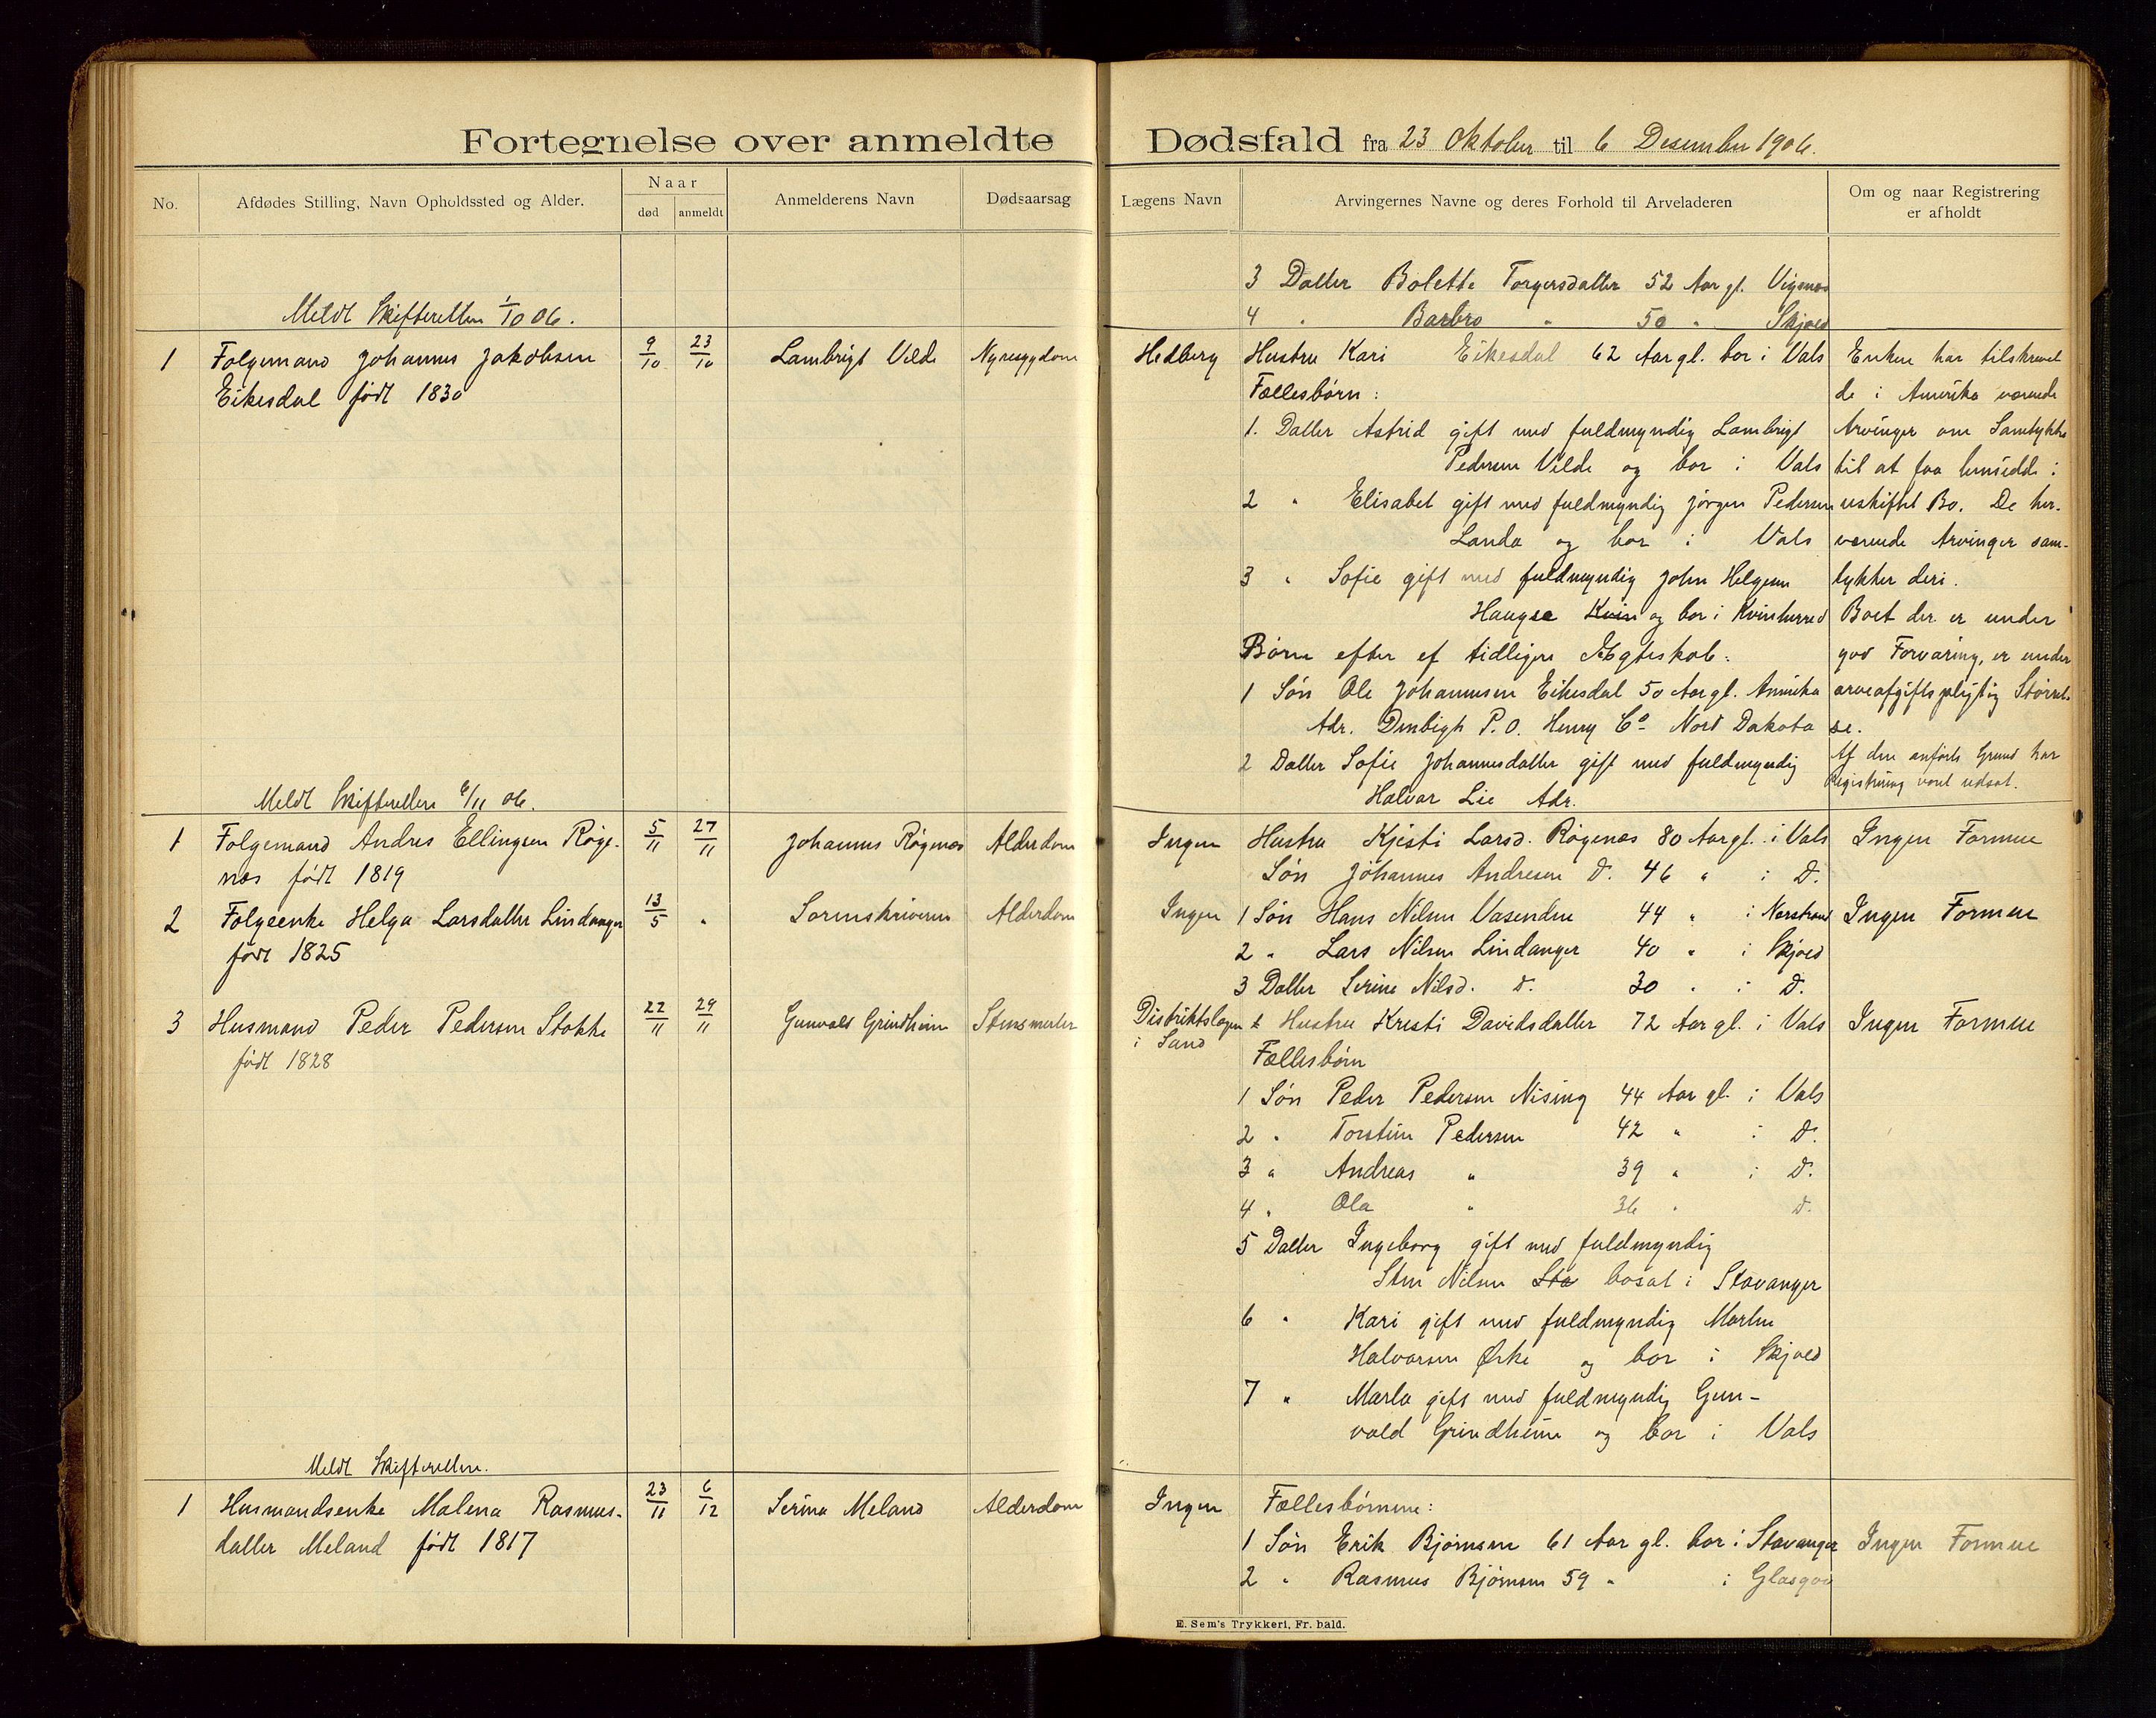 Fortegnelse over anmeldte Dødsfald fra 23 Oktober til 6 Desember 1906.
No.
Afdødes Stilling, Navn Opholdssted og Alder.
Naar
død
anmeldt
Anmelderens Navn
Dødsaarsag
Lægens Navn
Arvingernes Navne og deres Forhold til Arveladeren
Om og naar Registrering
er afholdt
3 Datter Bolette Torgersdatter 52 Aar gl. Vigenes
4 " Barbro " 50 " Skjold
Meldt Skifteretten 1/10 06.
1 Folgemand Johannes Jakobsen
Eikesdal født 1830
9/10 23/10 Lambrigt Vilde Nyresygdom
Hedberg
Hustru Kari Eikesdal 62 Aar gl. bor i Vats
Fællesbørn:
1. Datter Astrid gift med fuldmyndig Lambrigt
Pedersen Vilde og bor i Vats
2 " Elisabet gift med fuldmyndig Jørgen Pedersen
Landa og bor i Vats
3 " Sofie gift med fuldmyndig John Helgesen
Haugse Kvin og bor i Kvinherred
Børn efter et tidligere Ægteskab:
1 Søn Ole Johannesen Eikesdal 50 Aar gl. Amerika
Adr. Denbigh P.O. Henry Co Nord Dakota
2 Datter Sofie Johannesdatter gift med fuldmyndig
Halvar Lie Adr.
Enken har tilskrevet
de i Amerika værende
Arvinger om Samtykke
til at faa hensidde i
uskiftet Bo. De her-
værende Arvinger sam-
tykker deri.
Boet der er under
god Forvaring, er under
arveafgiftspligtig Størrel-
se.
Af den anførte Grund har
Registrering været udsat.
Meldt Skifteretten 6/11 06.
1 Folgemand Andres Ellingsen Røge-
nes født 1819
5/11 27/11 Johannes Røgenes Alderdom
Ingen
Hustru Kjesti Larsd. Røgenes 80 Aar gl. i Vats
Søn Johannes Andresen D. 46 " i D.
Ingen Formue
2 Folgeenke Helga Larsdatter Lindanger
født 1825
13/5 " Sorenskriveren Alderdom
Ingen
1 Søn Hans Nilsen Vasenden 44 " i Nerstrand
2 " Lars Nilsen Lindanger 40 " i Skjold
3 Datter Serine Nilsd. D. 30 " i D.
Ingen Formue
3 Husmand Peder Pedersen Stokke
født 1828
22/11 29/11 Gunvald Grindheim Stensmerter
Distriktslægen
i Sand
Hustru Kresti Davidsdatter 72 Aar gl. i Vats
Fællesbørn
1 Søn Peder Pedersen Nising 44 Aar gl. i Vats
2 " Torstein Pedersen 42 " i D.
3 " Andreas " 39 " i D.
4 " Ola " 36 " D.
5 Datter Ingeborg gift med fuldmyndig
Sten Nilsen Sta bosat i Stavanger
6 " Kari gift med fuldmyndig Marten
Halvorsen Ørke og bor i Skjold
7 " Marta gift med fuldmyndig Gun-
vald Grindheim og bor i Vats
Ingen Formue
Meldt Skifteretten.
1 Husmandsenke Malena Rasmus-
datter Meland født 1817
23/11 6/12 Serina Meland Alderdom
Ingen
Fællesbørnene:
1 Søn Erik Bjørnsen 61 Aar gl. bor i Stavanger
2 " Rasmus Bjørnsen 59 " i Glasgow
Ingen Formue
E. Sem's Trykkeri, Fr. hald.